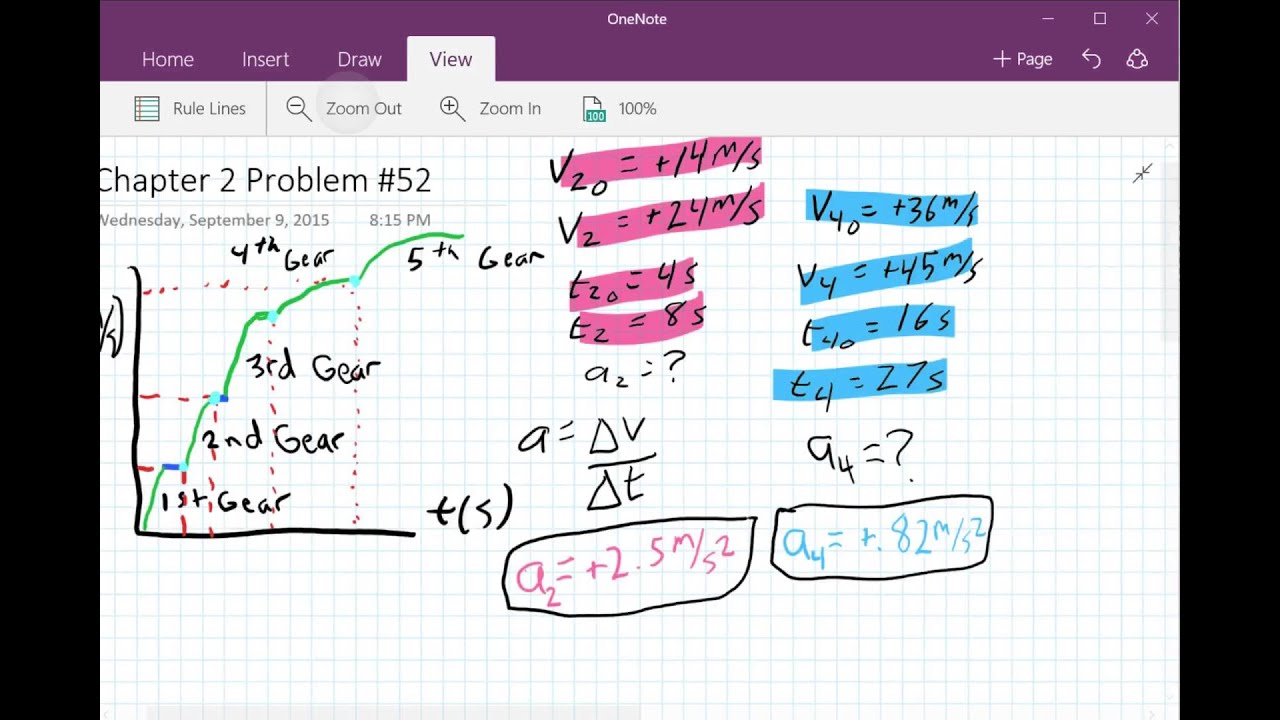 OneNote
Home Insert Draw View + Page
Rule Lines Zoom Out Zoom In 100 100%
Chapter 2 Problem #52
Wednesday, September 9, 2015 8:15 PM
4th Gear
5th Gear
3rd Gear
2nd Gear
1st Gear
t(s)
V20 = +14 m/s
V2 = +24 m/s
t20 = 4s
t2 = 8s
a2 = ?
a = ΔV
Δt
a2 = +2.5 m/s2
V40 = +36 m/s
V4 = +45 m/s
t40 = 16s
t4 = 27s
a4 = ?
a4 = +.82 m/s2